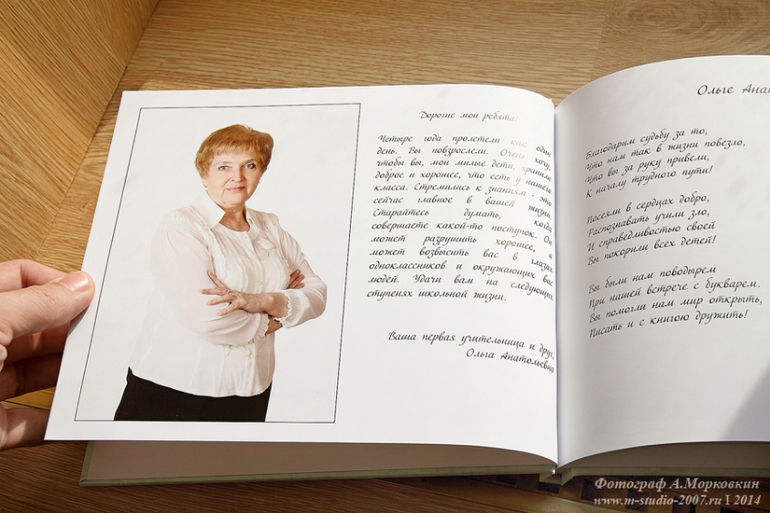 Дорогие мои ребята!
Четыре года пролетели как один
день. Вы повзрослели. Очень хочу,
чтобы вы, мои милые дети, хранили
доброе и хорошее, что есть у нашего
класса. Стремились к знаниям - это
сейчас главное в вашей жизни.
Старайтесь думать, когда
совершаете какой-то поступок. Он
может разрушить хорошее, а
может возвысить вас в глазах
одноклассников и окружающих вас
людей. Удачи вам на следующих
ступенях школьной жизни.
Ваша первая учительница и друг,
Ольга Анатольевна
Ольге
Благодарим судьбу за то,
Что нам так в жизни повезло,
Что вы за руку привели,
К началу трудного пути!
Посеяли в сердцах добро,
Распознавать учили зло,
И справедливостью своей
Вы покорили всех детей!
Вы были нам поводырем
При нашей встрече с букварем.
Вы помогли нам мир открыть,
Писать и с книгою дружить!
Фотограф А.Морковкин
www.m-studio-2007.ru | 2014